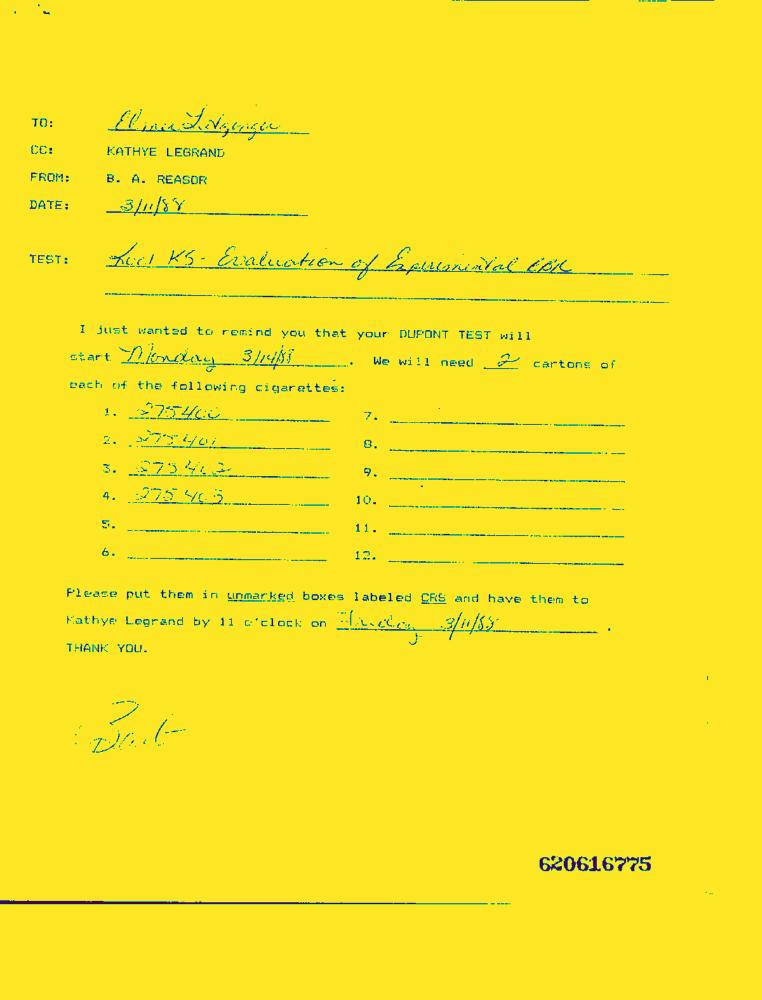 TO: Elmer
CC: KATHYE LEGRAND
FROM: B. A. REASOR
DATE: 3/11/88
TEST: KS - Evaluation of Experimental
I just wanted to remind you that your DUPONT TEST will
start Monday 3/14/88. We will need 2 cartons of
each of the following cigarettes:
1. 275400 7.
2. 275401 8.
3. 275402 9.
4. 275403 10.
5. 11.
6. 12.
Please put them in unmarked boxes labeled CRS and have them to
Kathye Legrand by 11 o'clock on Friday 3/11/88.
THANK YOU.
620616775